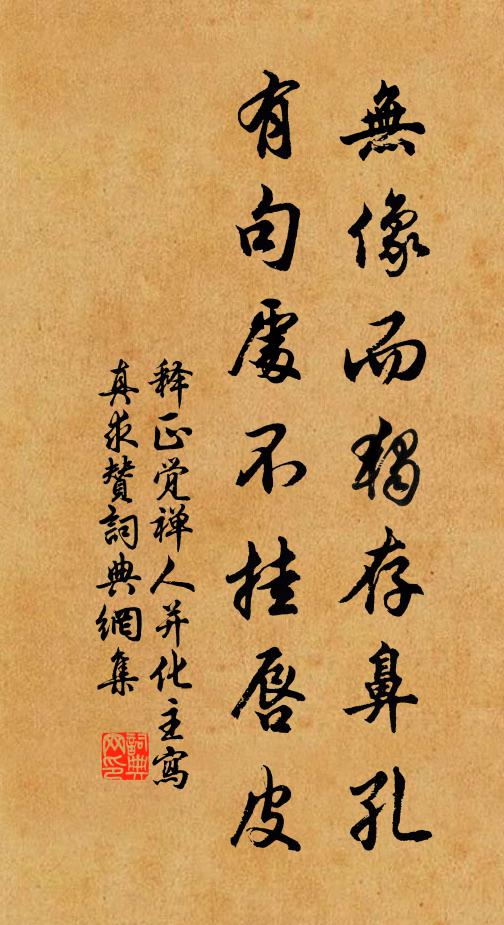 無像而獨存鼻孔
有句處不挂唇皮
释正覚禅人并化主寫
真求賛詞典網集
詞典網印